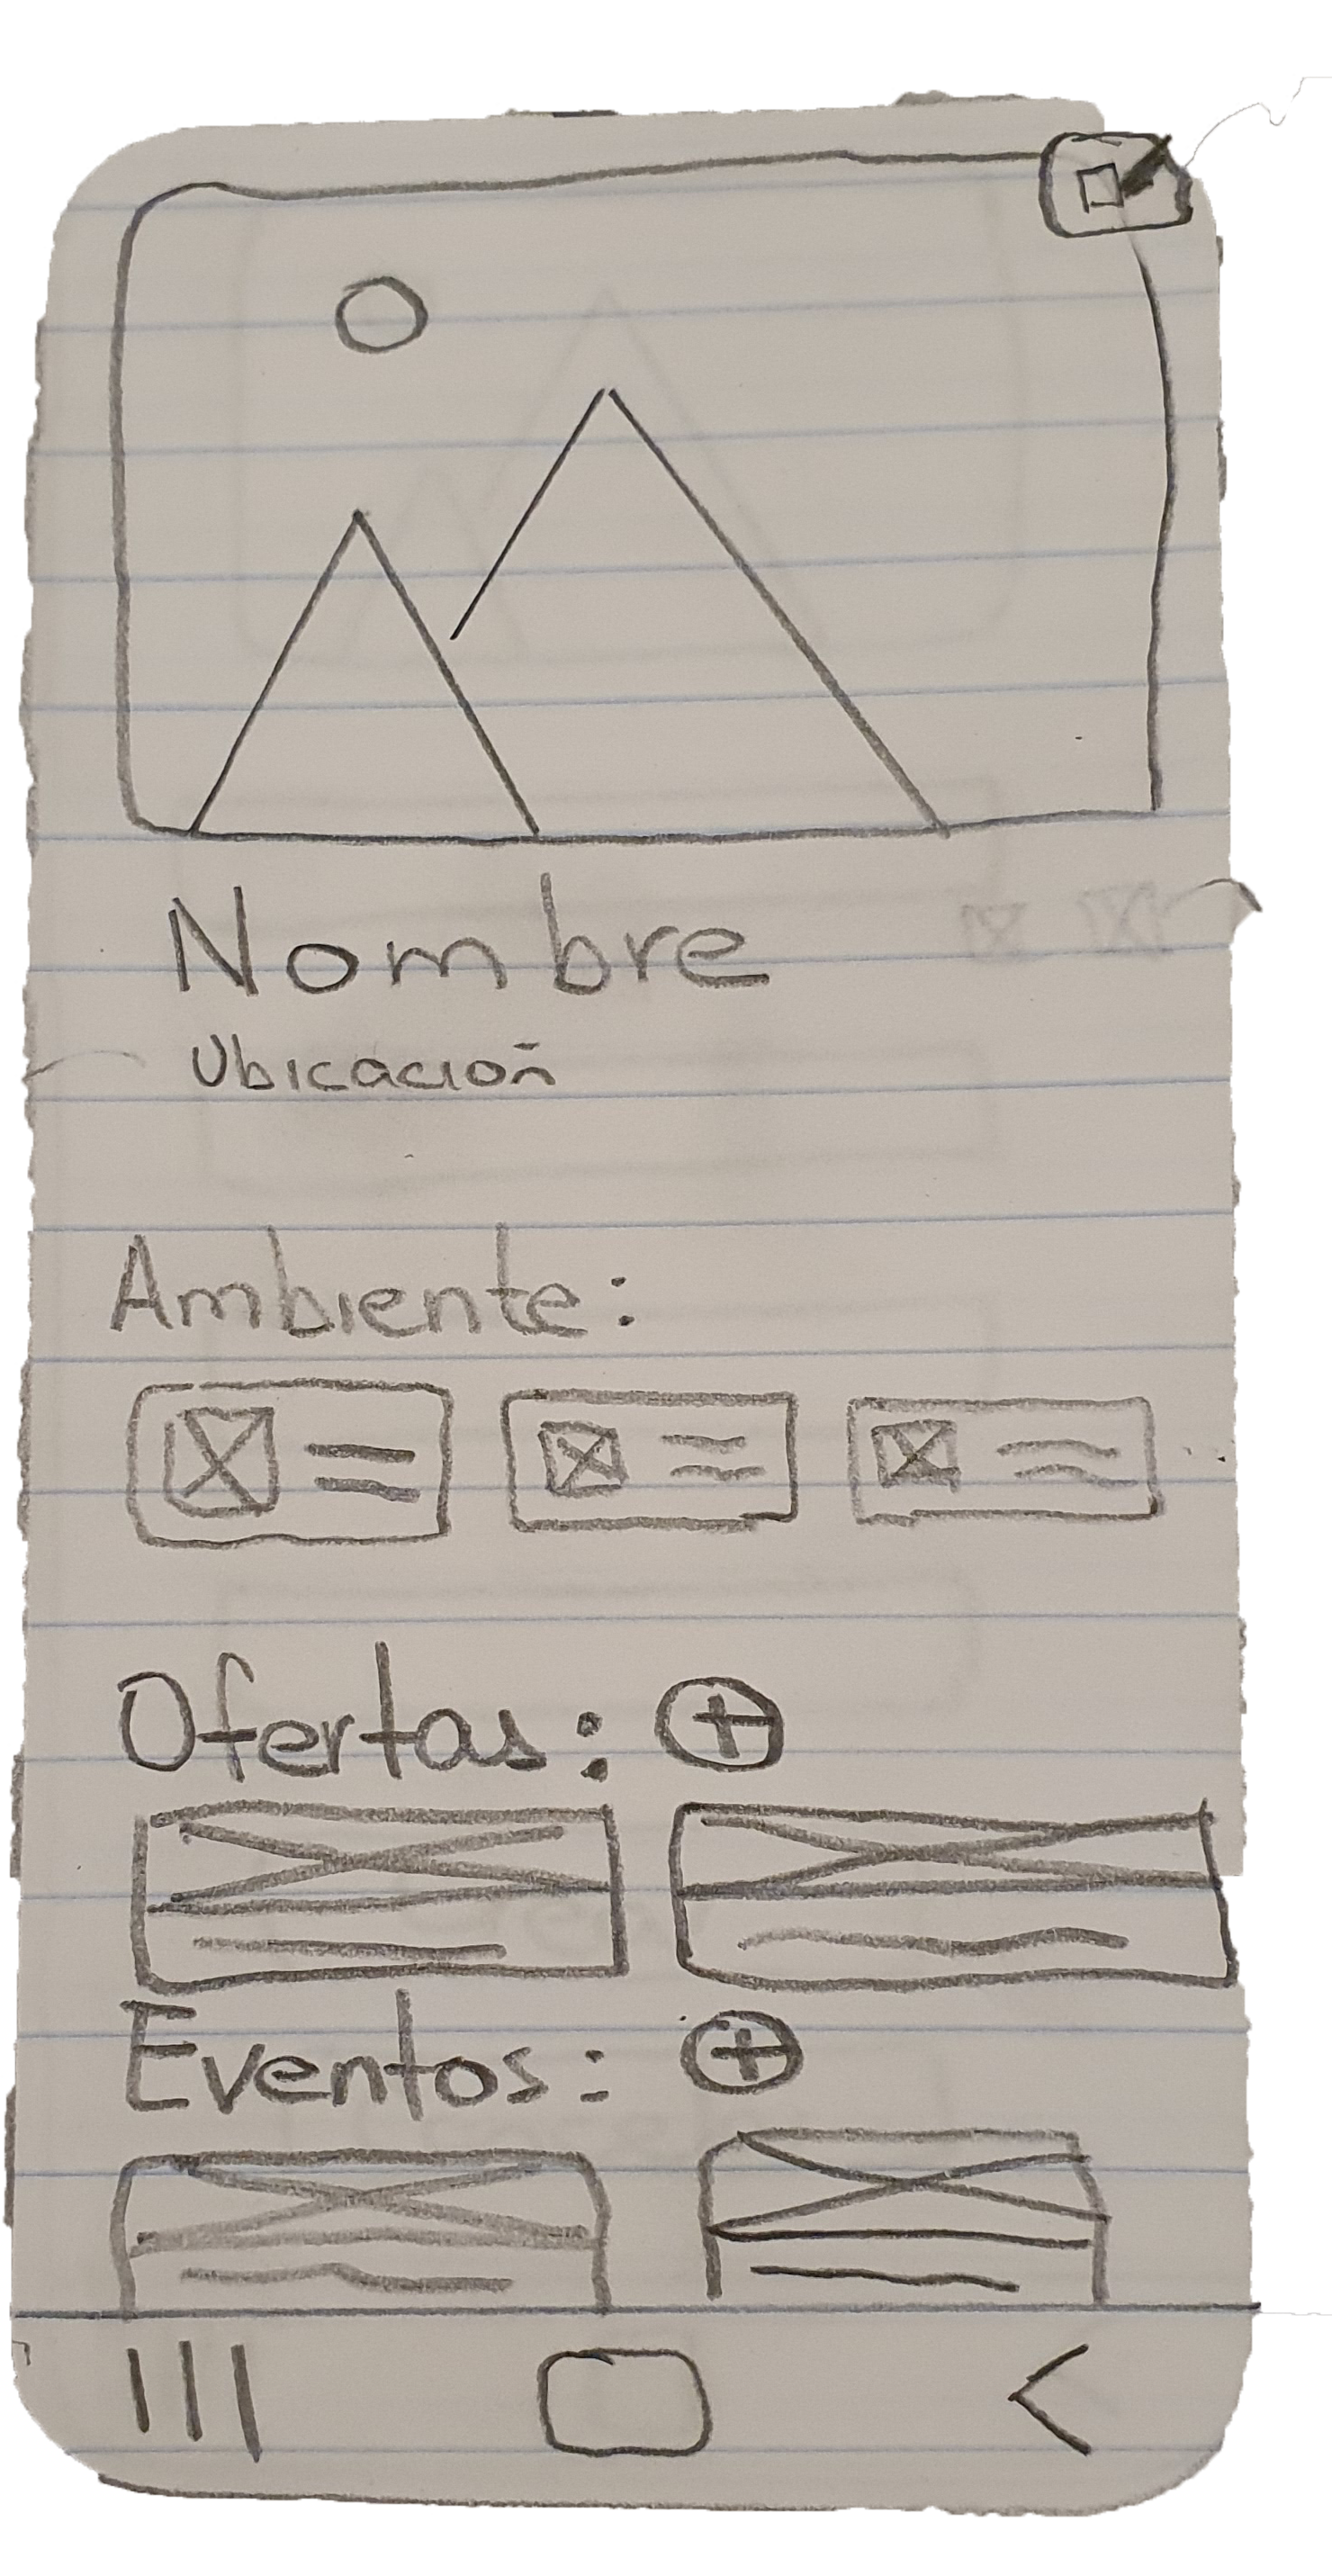 Nombre
Ubicación
Ambiente:
Ofertas: +
Eventos: +